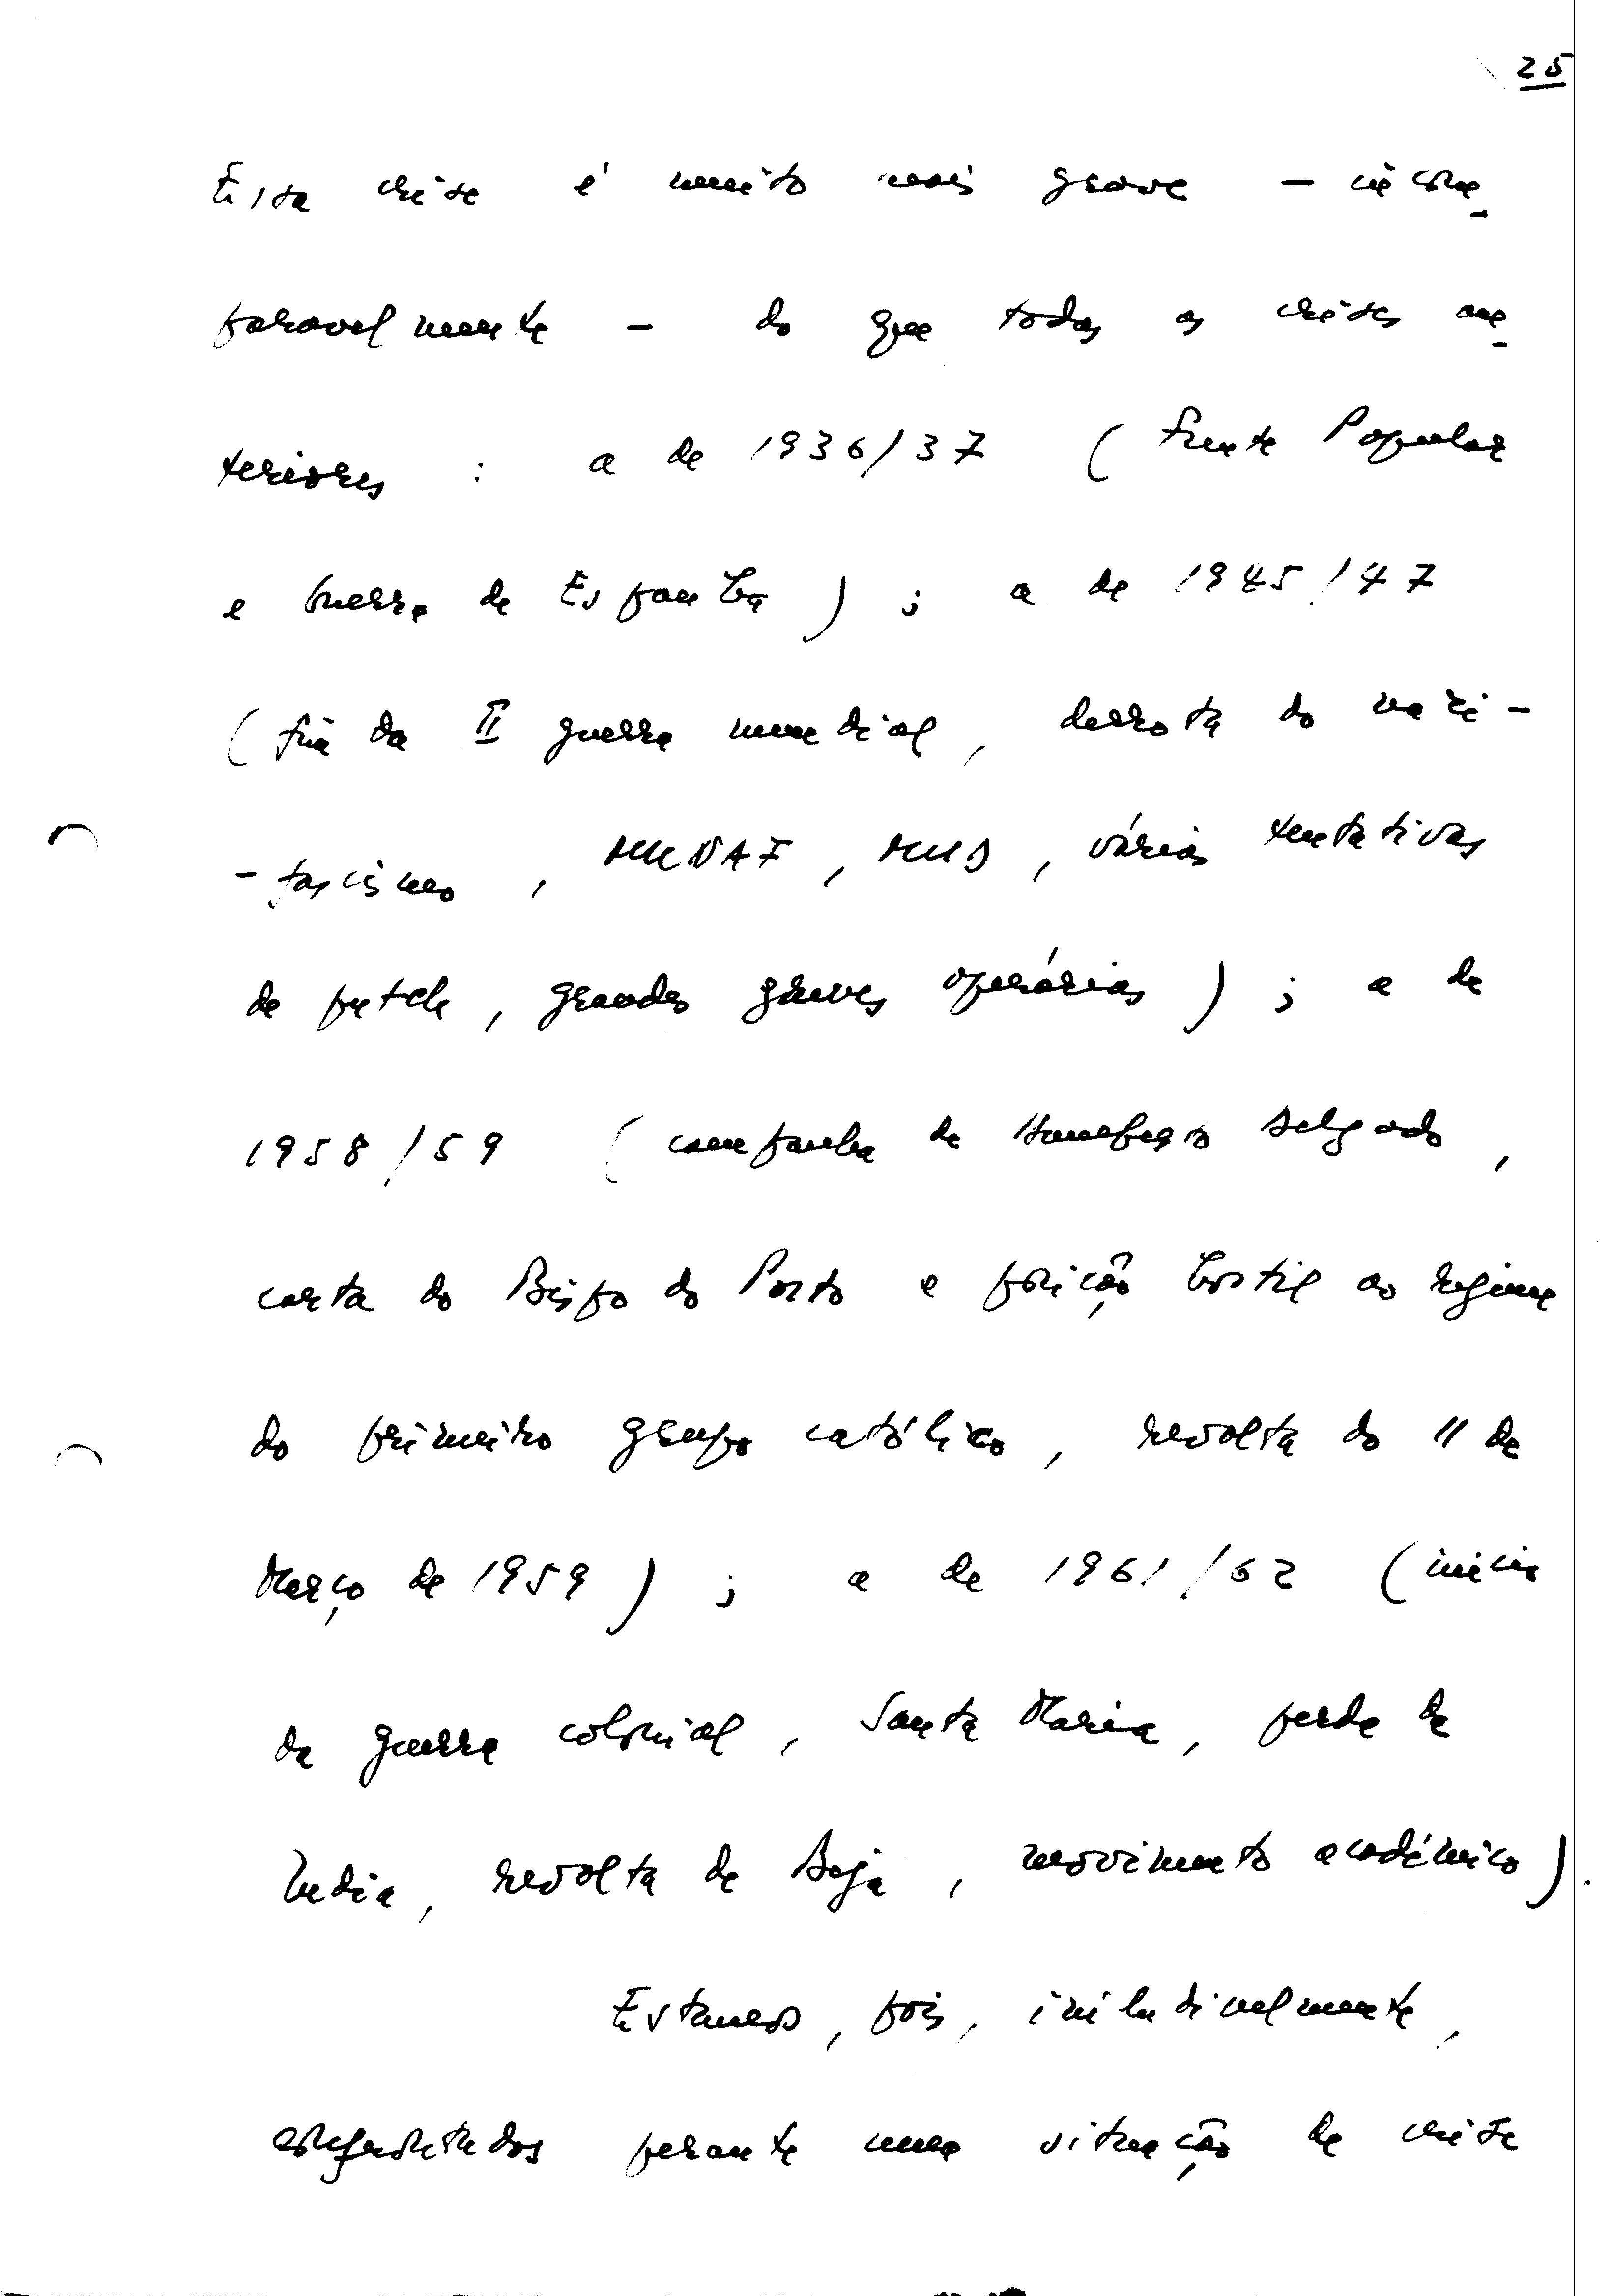 25
Esta crise é muito mais grave – incom-
paravelmente – do que todas as crises an-
teriores : a de 1936/37 ( Frente Popular
e Guerra de Espanha ) ; a de 1945/47
( fim da II guerra mundial, derrota do nazi-
-fascismo, MUNAF, MUD, várias tentativas
de putch, grandes greves operárias ) ; a de
1958/59 ( campanha de Humberto Delgado,
carta do Bispo do Porto e posição hostil ao regime
do primeiro grupo católico, revolta do 11 de
Março de 1959 ) ; a de 1961/62 ( início
da guerra colonial, Santa Maria, perda da
India, revolta de Beja, movimento académico ).
Estamos, pois, iniludivelmente,
confrontados perante uma situação de crise